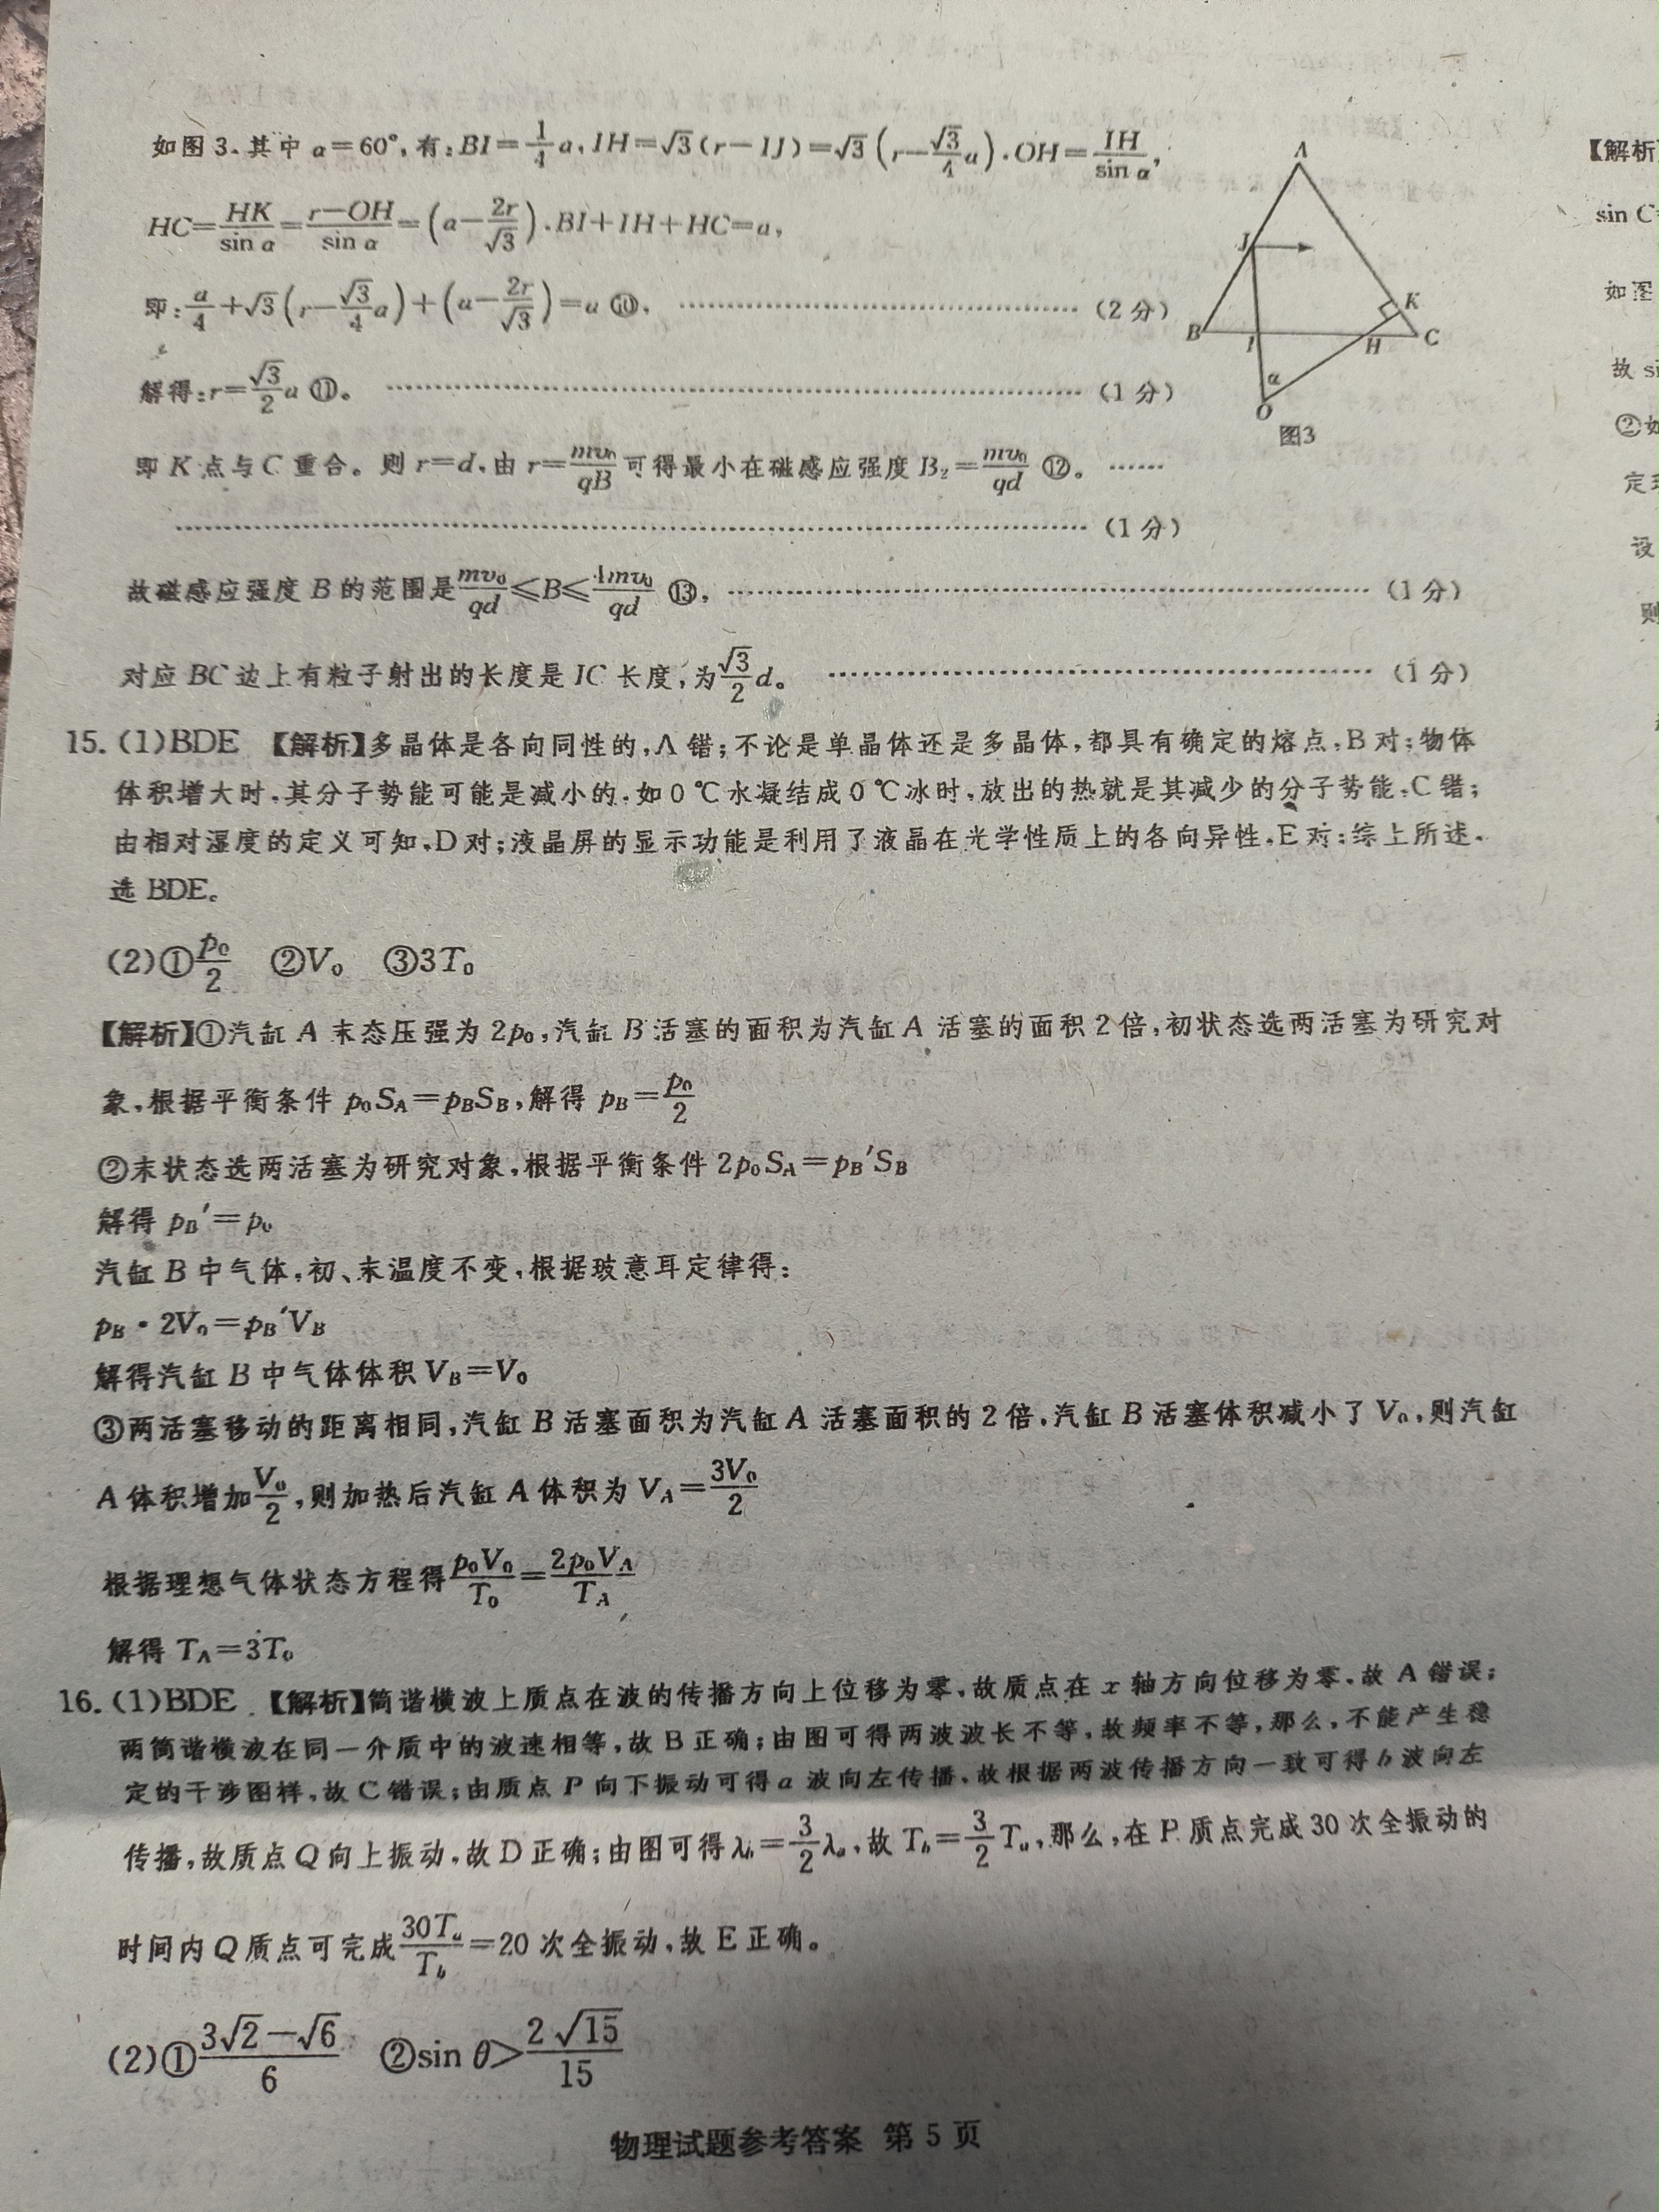 如图 3、其中 α=60°,有:BI=\frac{1}{4}a,IH=√3(r-IJ)=√3(r-\frac{√3}{4}a).OH=\frac{IH}{sin α},
HC=\frac{HK}{sin α}=\frac{r-OH}{sin α}=(a-\frac{2r}{√3}).BI+IH+HC=a,
即:\frac{a}{4}+√3(r-\frac{√3}{4}a)+(a-\frac{2r}{√3})=a ⑩, ……(2 分)
解得:r=\frac{√3}{2}a ⑪。 ……(1 分)
A
J
K
B
I
H
C
α
O
图3
即 K 点与 C 重合。则 r=d,由 r=\frac{mv₀}{qB}可得最小在磁感应强度 B₂=\frac{mv₀}{qd} ⑫。 ……
……(1 分)
故磁感应强度 B 的范围是\frac{mv₀}{qd}≤B≤\frac{4mv₀}{qd} ⑬, ……(1 分)
对应 BC 边上有粒子射出的长度是 IC 长度,为\frac{√3}{2}d。 ……(1 分)
15. (1)BDE 【解析】多晶体是各向同性的,A 错;不论是单晶体还是多晶体,都具有确定的熔点,B 对;物体
体积增大时,其分子势能可能是减小的,如 0 ℃水凝结成 0 ℃冰时,放出的热就是其减少的分子势能,C 错;
由相对湿度的定义可知,D 对;液晶屏的显示功能是利用了液晶在光学性质上的各向异性,E 对;综上所述,
选 BDE。
(2)①\frac{p₀}{2} ②V₀ ③3T₀
【解析】①汽缸 A 末态压强为 2p₀,汽缸 B 活塞的面积为汽缸 A 活塞的面积 2 倍,初状态选两活塞为研究对
象,根据平衡条件 p₀S_A=p_BS_B,解得 p_B=\frac{p₀}{2}
②末状态选两活塞为研究对象,根据平衡条件 2p₀S_A=p_B′S_B
解得 p_B′=p₀
汽缸 B 中气体,初、末温度不变,根据玻意耳定律得:
p_B·2V₀=p_B′V_B
解得汽缸 B 中气体体积 V_B=V₀
③两活塞移动的距离相同,汽缸 B 活塞面积为汽缸 A 活塞面积的 2 倍,汽缸 B 活塞体积减小了 V₀,则汽缸
A 体积增加\frac{V₀}{2},则加热后汽缸 A 体积为 V_A=\frac{3V₀}{2}
根据理想气体状态方程得\frac{p₀V₀}{T₀}=\frac{2p₀V_A}{T_A}
解得 T_A=3T₀
16. (1)BDE 【解析】简谐横波上质点在波的传播方向上位移为零,故质点在 x 轴方向位移为零,故 A 错误;
两简谐横波在同一介质中的波速相等,故 B 正确;由图可得两波波长不等,故频率不等,那么,不能产生稳
定的干涉图样,故 C 错误;由质点 P 向下振动可得 a 波向左传播,故根据两波传播方向一致可得 b 波向左
传播,故质点 Q 向上振动,故 D 正确;由图可得 λ_b=\frac{3}{2}λ_a,故 T_b=\frac{3}{2}T_a,那么,在 P 质点完成 30 次全振动的
时间内 Q 质点可完成\frac{30T_a}{T_b}=20 次全振动,故 E 正确。
(2)①\frac{3√2-√6}{6} ②sin θ>\frac{2√15}{15}
物理试题参考答案 第 5 页
【解析】
sin C
如图
故 si
②如
定
设
则